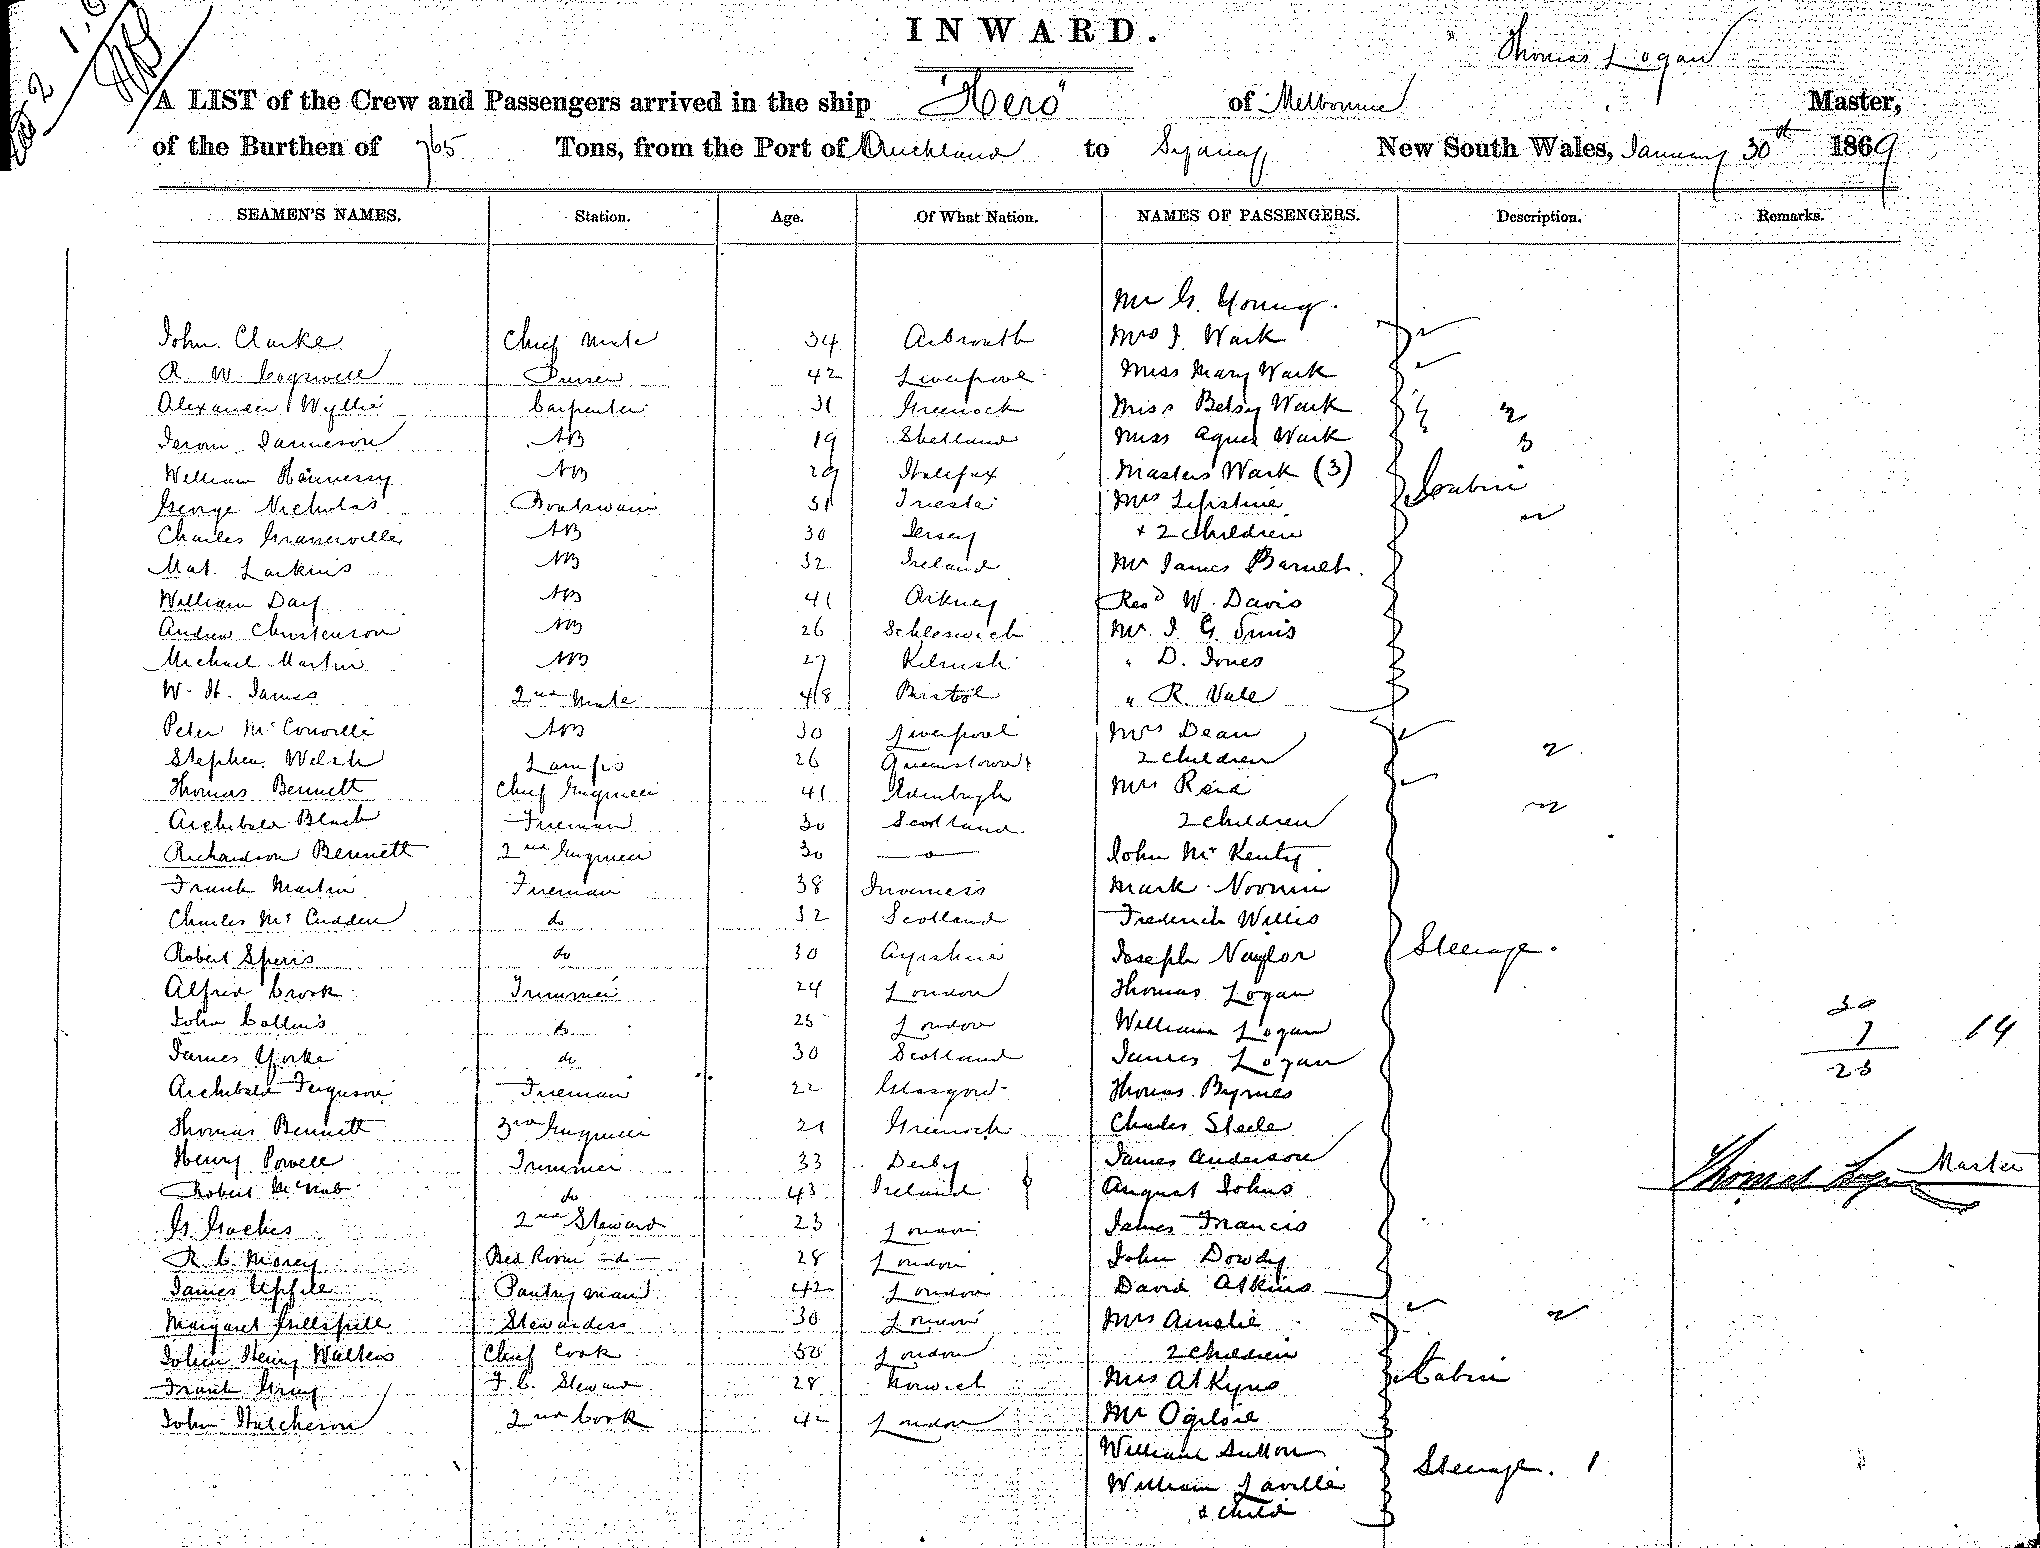 INWARD.
Thomas Logan
A LIST of the Crew and Passengers arrived in the ship "Hero" of Melbourne Master,
of the Burthen of 765 Tons, from the Port of Auckland to Sydney New South Wales, January 30th 1869
SEAMEN'S NAMES. Station. Age. Of What Nation. NAMES OF PASSENGERS. Description. Remarks.
Mr G. Young.
John Clarke Chief Mate 34 Arbroath Mrs J. Wark
R. W. Cogswell Purser 42 Liverpool Miss Mary Wark
Alexander Wyllie Carpenter 31 Greenock Miss Betsy Wark 2
Jerom Jameson AB 19 Shetland Miss Agnes Wark 3
William Hennessy AB 29 Halifax Masters Wark (3)
George Nicholas Boatswain 31 Trieste Mrs Cabin
Charles AB 30 Jersey + 2 children 2
Mat. Larkins AB 32 Ireland Mr James Barnet.
William Day AB 41 Orkney Revd W. Davis
Andrew Christenson AB 26 Schleswich Mr. J. G. Sims
Michael Martin AB 27 Kilrush " D. Jones
W. H. James 2nd Mate 48 Bristol " R. Vale
Peter McConville AB 30 Liverpool Mrs Dean
Stephen Welsh Lamps 26 Queenstown 2 children 2
Thomas Bennett Chief Engineer 41 Edinburgh Mrs Reid
Archibald Black Fireman 30 Scotland 2 children 2
Richardson Bennett 2nd Engineer 30 — o — John McKenty
Frank Martin Fireman 38 Inverness Mark Noonin
Charles McCudden do 32 Scotland Frederick Willis
Robert Speirs do 30 Ayrshire Joseph Naylor Steerage.
Alfred Crook Trimmer 24 London Thomas Logan
John Collins do 25 London William Logan 30
James Yorke do 30 Scotland James Logan 7 14
Archibald Ferguson Fireman 22 Glasgow Thomas Byrnes 23
Thomas Bennett 3rd Engineer 21 Greenock Charles Steele
Henry Powell Trimmer 33 Derby James Anderson Thomas Logan Master
Robert McNab do 43 Ireland August Johns
G. Gaches 2nd Steward 23 London James Francis
R. C. Morey Bed Room —do— 28 London John Dowdy
James Upfile Pantryman 42 London David Atkins
Margaret Gillespie Stewardess 30 London Mrs Amelie 2
John Henry Walters Chief Cook 50 London 2 children
Frank Gray F. C. Steward 28 Norwich Mrs Atkyns Cabin
John Hutcheson 2nd Cook 42 London Mr Ogilvie
William Sutton
William Laville Steerage. 1
& child